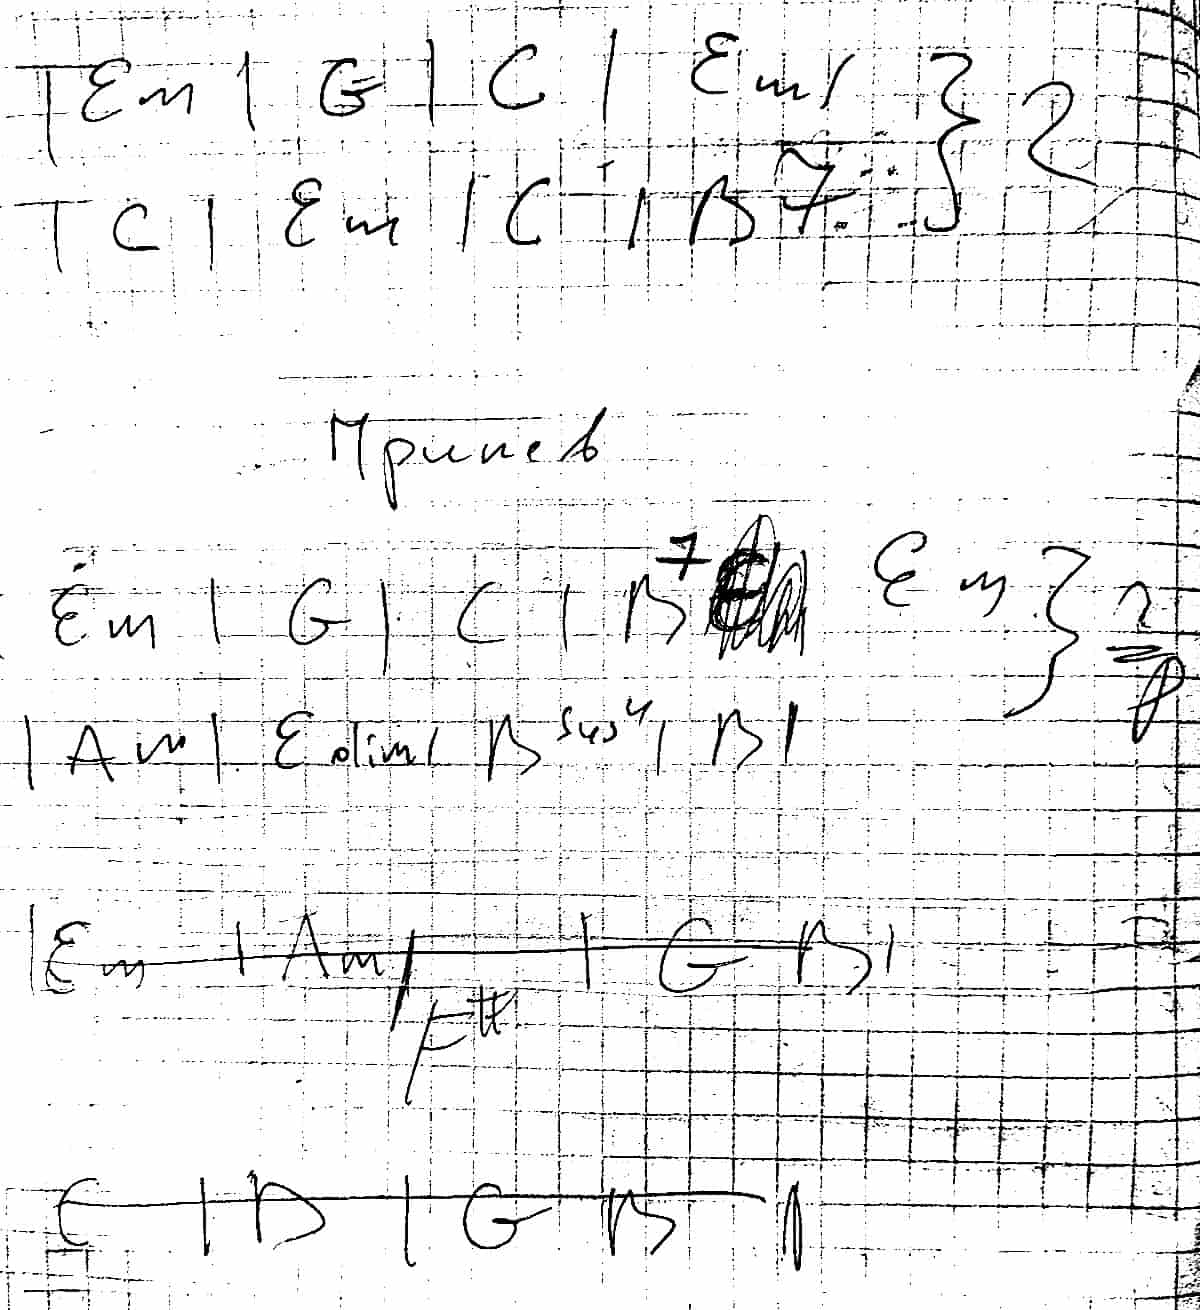 Em | G | C | Em | } 2
| C | Em | C | B7 :
Припев
Em | G | C | B7 Em } 2
| Am | Edim | Bsus4 | B |
| Em | Am/F# | G B |
C | D | G B |